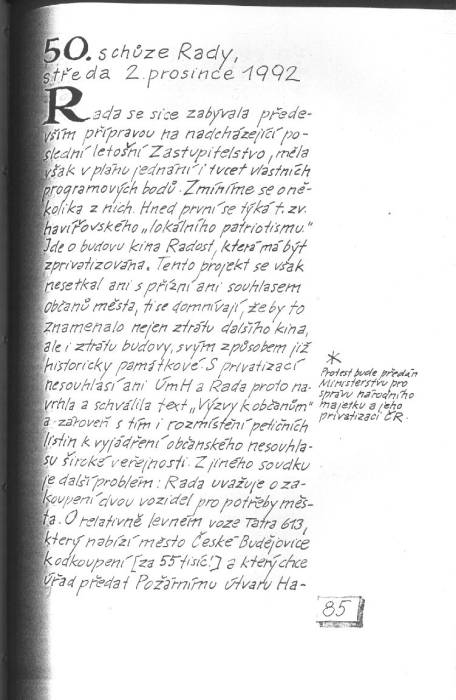 50. schůze Rady,
středa 2. prosince 1992
Rada se sice zabývala přede-
vším přípravou na nadcházející po-
slední letošní Zastupitelstvo, měla
však v plánu jednání i tucet vlastních
programových bodů. Zmíníme se o ně-
kolika z nich. Hned první se týká t. zv.
havířovského „lokálního patriotismu."
Jde o budovu kina Radost, která má být
zprivatizována. Tento projekt se však
nesetkal ani s přízní ani souhlasem
občanů města, ti se domnívají, že by to
znamenalo nejen ztrátu dalšího kina,
ale i ztrátu budovy, svým způsobem již
historicky památkové. S privatizací
nesouhlasí ani ÚmH a Rada proto na-
vrhla a schválila text „Výzvy k občanům"
a zároveň s tím i rozmístění petičních
listin k vyjádření občanského nesouhla-
su široké veřejnosti. Z jiného soudku
je další problém: Rada uvažuje o za-
koupení dvou vozidel pro potřeby měs-
ta. O relativně levném voze Tatra 613,
který nabízí město České Budějovice
k odkoupení [za 55 tisíc!] a který chce
úřad předat Požárnímu útvaru Ha-
*
Protest bude předán
Ministerstvu pro
správu národního
majetku a jeho
privatizaci ČR.
85